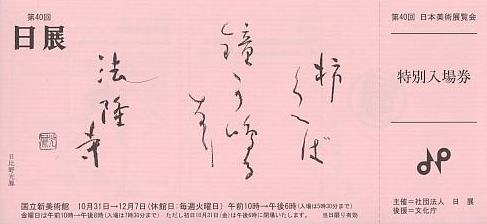 第40回
日展
柿くへば
鐘か鳴る
なり
法隆寺
日比野光鳳
国立新美術館 10月31日→12月7日(休館日:毎週火曜日) 午前10時→午後6時(入場は5時30分まで)
金曜日は午前10時→午後8時(入場は7時30分まで) ただし初日10月31日(金)は午後6時に閉場いたします。 当日限り有効
第40回 日本美術展覧会
特別入場券
主催=社団法人 日 展
後援=文化庁